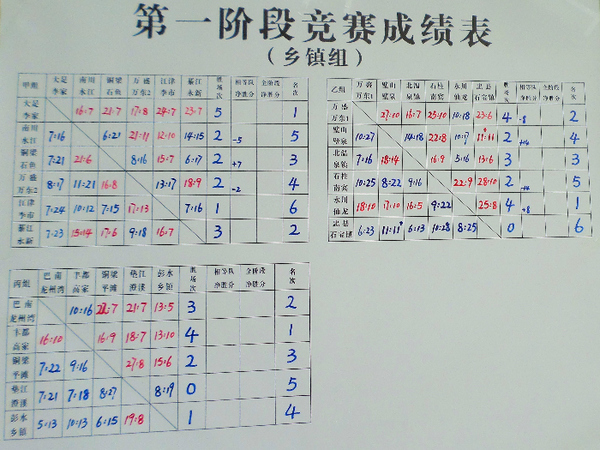 第一阶段竞赛成绩表
(乡镇组)
甲组 大足李家 南川水江 铜梁石鱼 万盛万东2 江津李市 綦江永新 胜场次 相等队净胜分 全阶段净胜分 名次
大足李家 16:7 21:7 17:8 24:7 23:7 5 1
南川水江 7:16 6:21 21:11 12:10 14:15 2 -5 5
铜梁石鱼 7:21 21:6 8:16 15:7 6:17 2 +7 3
万盛万东2 8:17 11:21 16:8 13:17 18:9 2 -2 4
江津李市 7:24 10:12 7:15 17:13 7:16 1 6
綦江永新 7:23 15:14 17:6 9:18 16:7 3 2
乙组 万盛万东1 璧山璧泉 北碚 石柱南宾 永川仙龙 忠县石宝镇 胜场次 相等队净胜分 全阶段净胜分 名次
万盛万东1 27:10 16:7 25:10 10:18 23:6 4 -8 2
璧山璧泉 10:27 14:18 22:8 10:17 11:11 2 4
北碚 7:16 18:14 16:9 5:16 13:6 3 3
石柱南宾 10:25 8:22 9:16 22:9 28:10 2 5
永川仙龙 18:10 17:10 16:5 9:22 25:8 4 +8 1
忠县石宝镇 6:23 11:11 6:13 10:28 8:25 0 6
丙组 巴南龙州湾 丰都高家 铜梁平滩 垫江澄溪 彭水乡镇 胜场次 相等队净胜分 全阶段净胜分 名次
巴南龙州湾 10:16 22:7 21:7 13:5 3 2
丰都高家 16:10 16:9 18:7 13:10 4 1
铜梁平滩 7:22 9:16 27:8 15:6 2 3
垫江澄溪 7:21 7:18 8:27 8:19 0 5
彭水乡镇 5:13 10:13 6:15 19:8 1 4